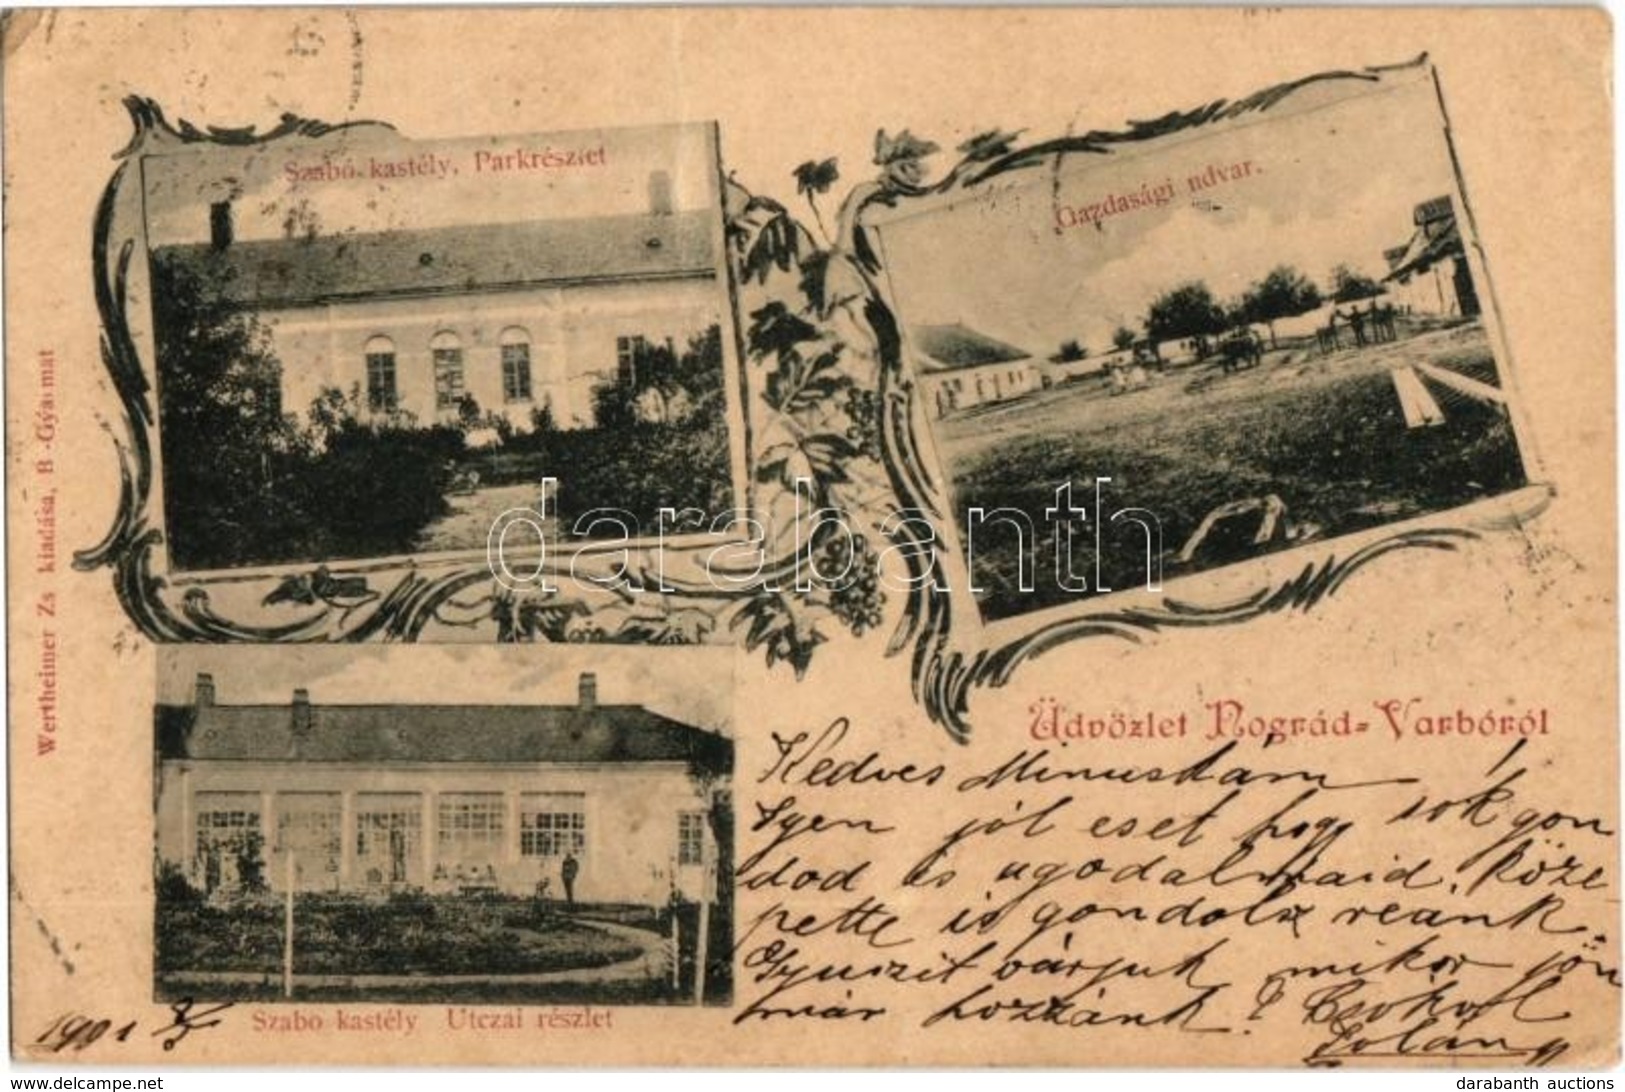 Szabó kastély, Parkrészlet
Gazdasági udvar.
Wertheimer Zs kiadása, B-Gyarmat
darabanth
Üdvözlet Nográd-Varbóról
Kedves Minuskám!
Igen jól eset hogy sok gon
dod és ugodalmaid. köze
pette is gondolsz reánk.
Gyuszit várjuk mikor jön
már hozzánk? Csókol
Zolán
1901
Szabo kastély Utczai részlet
darabanth auctions